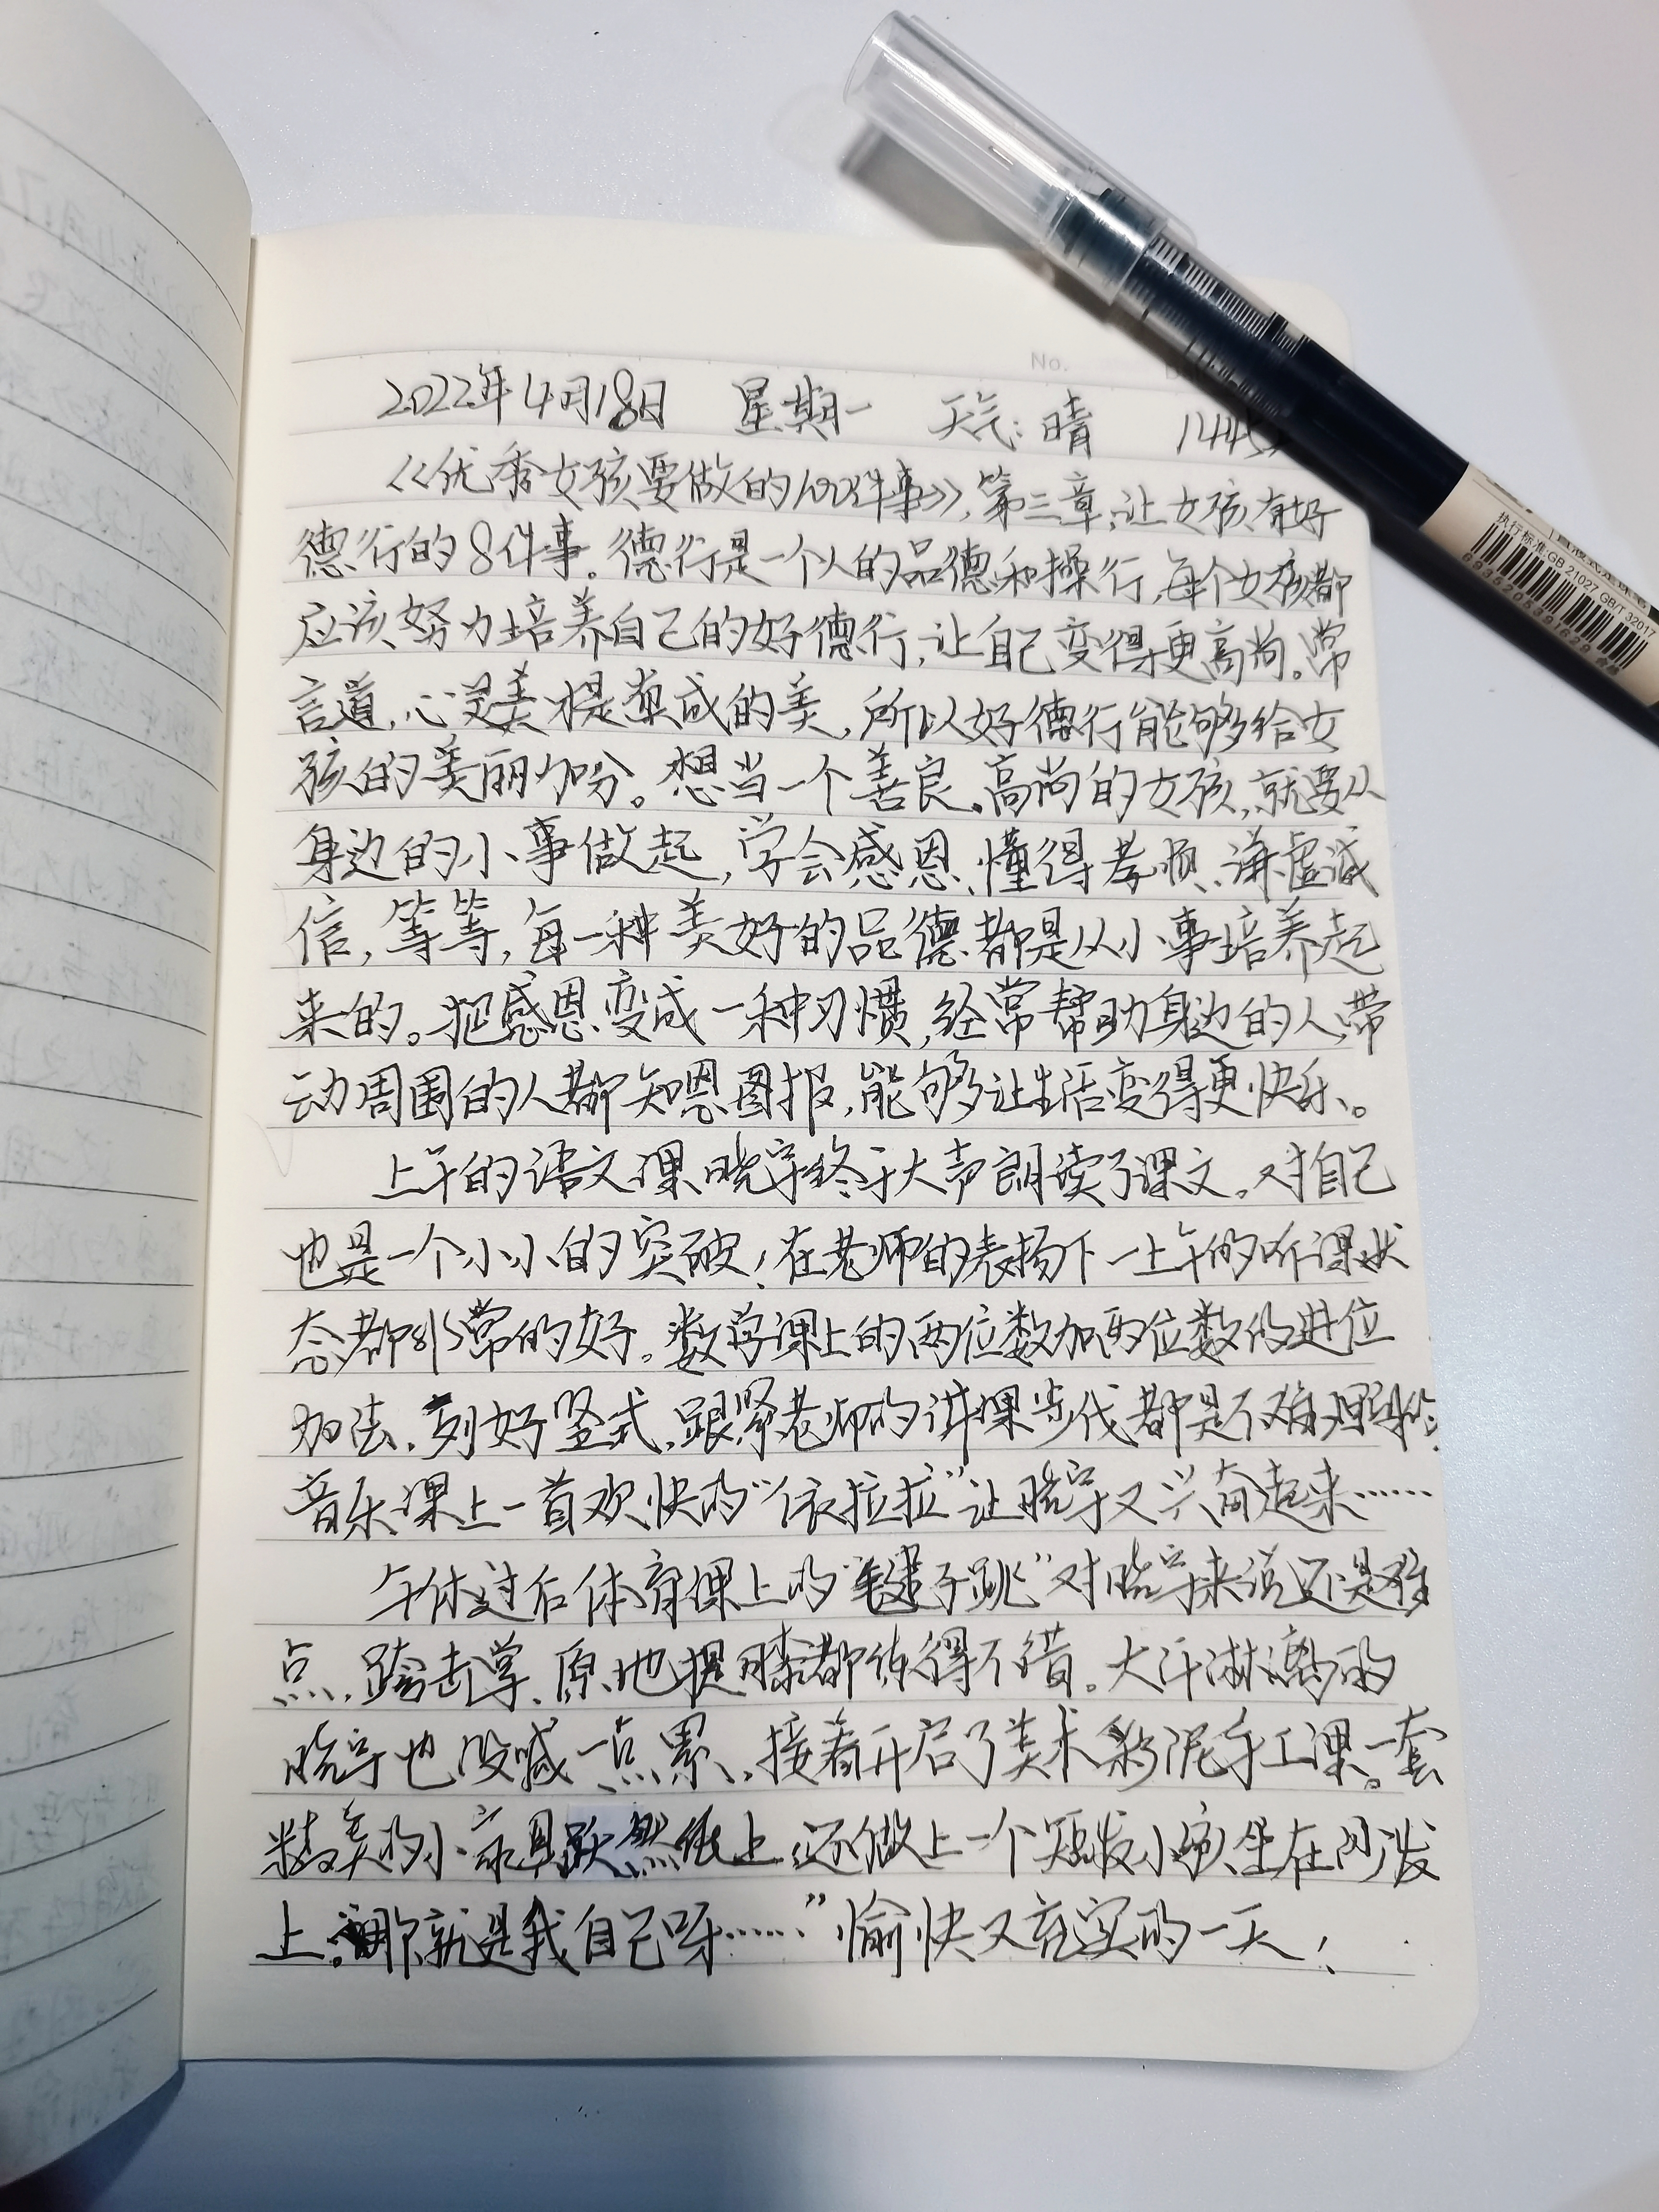 No.
2022年4月18日 星期一 天气:晴
《优秀女孩要做的100件事》,第三章:让女孩有好
德行的8件事。德行是一个人的品德和操行,每个女孩都
应该努力培养自己的好德行,让自己变得更高尚。常
言道,心灵美才是真正的美,所以好德行能够给女
孩的美丽加分。想当一个善良、高尚的女孩,就要从
身边的小事做起,学会感恩、懂得孝顺、谦虚诚
信,等等,每一种美好的品德都是从小事培养起
来的。把感恩变成一种习惯,经常帮助身边的人,带
动周围的人都知恩图报,能够让生活变得更快乐。
上午的语文课,晓宇终于大声朗读了课文。对自己
也是一个小小的突破!在老师的表扬下一上午的听课状
态都非常的好。数学课上的两位数加两位数的进位
加法,列好竖式,跟紧老师的讲课步伐都是不难理解的。
音乐课上一首欢快的“依拉拉”让晓宇又兴奋起来……
午休过后体育课上的“毽子跳”对晓宇来说还是难
点,跨击掌、原地提膝都练得不错。大汗淋漓的
晓宇也没喊一点累,接着开启了美术彩泥手工课。一套
精美的小家具跃然纸上,还做上一个短发小孩坐在沙发
上。那就是我自己呀……”愉快又充实的一天!
执行标准:GB 21027 GB/T 32017